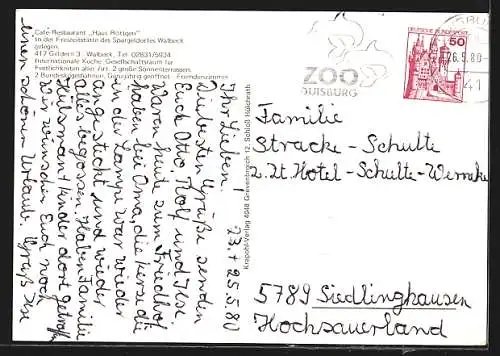 Café-Restaurant „Haus Röttgen"
in der Freizeitstätte des Spargeldorfes Walbeck
gelegen.
417 Geldern 3, Walbeck, Tel. 02831/5934
Internationale Küche, Gesellschaftsraum für
Festlichkeiten aller Art. 2 große Sonnenterrassen.
2 Bundeskegelbahnen, Ganzjährig geöffnet Fremdenzimmer
23. + 25.5.80
Ihr Lieben!
Liebsten Grüße senden
Euch Otto, Rolf und Ilse.
Waren heute zum Friedhof,
haben bei Oma, die Kerze die
in der Lampe war wieder
angesteckt und wieder
alles begossen. Haben Familie
Hülsmann Kinder dort getroffen
Wir wünschen Euch noch
einen schönen Urlaub. Gruß Ilse
Krapohl-Verlag 4048 Grevenbroich 12, Schloß Hülchrath
ZOO
DUISBURG
26.5.80
41
DEUTSCHE BUNDESPOST
50
Familie
Stracke - Schulte
z. Zt. Hotel - Schulte - Werneke
5789 Siedlinghausen
Hochsauerland